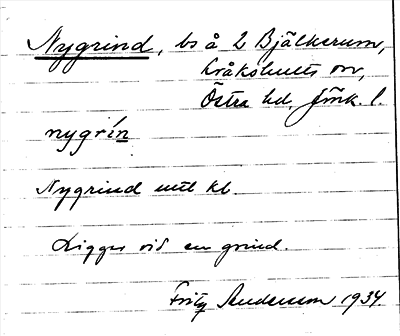 Nygrind, bs å 2 Bjälkerum,
Kråkshults sn,
Östra hd, Jönk. l.
nygrín
Nygrind utt kl.
Ligger vid en grind.
Fritz Anderson 1934.